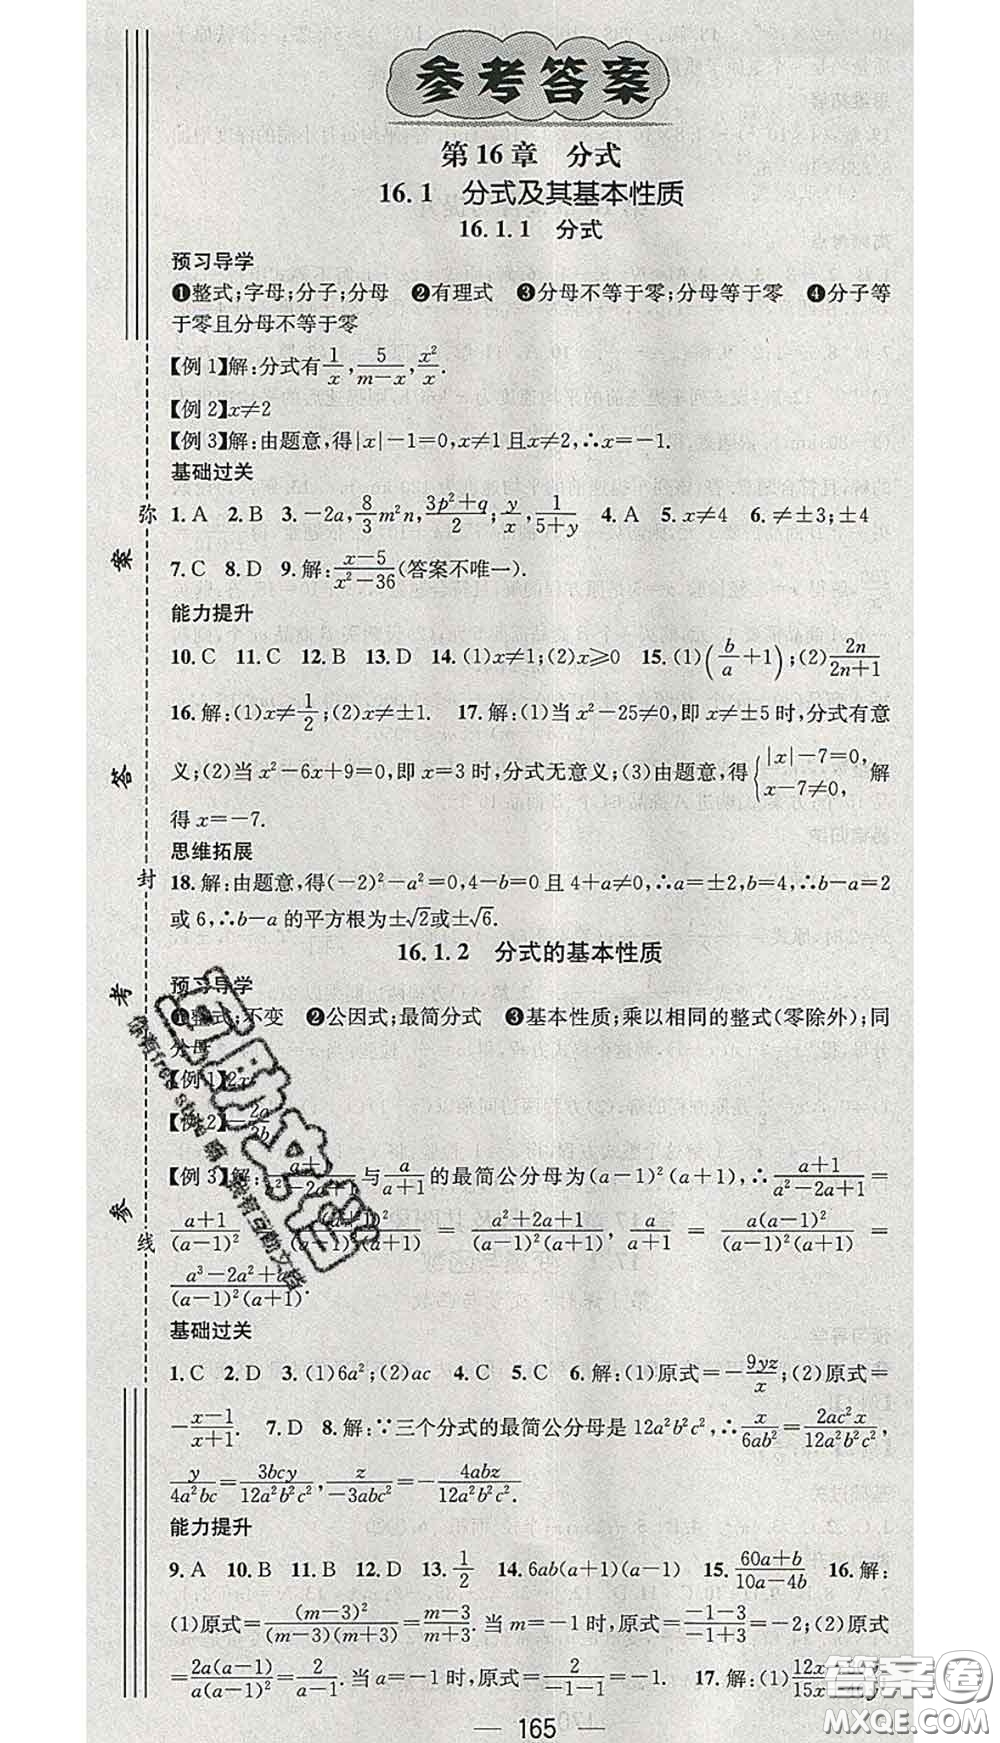 参考答案
第16章 分式
16.1 分式及其基本性质
16.1.1 分式
预习导学
❶整式;字母;分子;分母 ❷有理式 ❸分母不等于零;分母等于零 ❹分子等
于零且分母不等于零
【例1】解:分式有1/x,5/(m-x),x²/x.
【例2】x≠2
【例3】解:由题意,得|x|-1=0,x≠1且x≠2,∴x=-1.
基础过关
1.A 2.B 3.-2a,8/3 m²n,(3p²+q)/2;y/x,1/(5+y) 4.A 5.x≠4 6.≠±3;±4
7.C 8.D 9.解:(x-5)/(x²-36)(答案不唯一).
能力提升
10.C 11.C 12.B 13.D 14.(1)x≠1;(2)x⩾0 15.(1)(b/a+1);(2)2n/(2n+1)
16.解:(1)x≠1/2;(2)x≠±1. 17.解:(1)当x²-25≠0,即x≠±5时,分式有意
义;(2)当x²-6x+9=0,即x=3时,分式无意义;(3)由题意,得{|x|-7=0, x-7≠0,解
得x=-7.
思维拓展
18.解:由题意,得(-2)²-a²=0,4-b=0且4+a≠0,∴a=±2,b=4,∴b-a=2
或6,∴b-a的平方根为±√2或±√6.
16.1.2 分式的基本性质
预习导学
❶整式;不变 ❷公因式;最简分式 ❸基本性质;乘以相同的整式(零除外);同
分母
【例1】2x
【例2】
【例3】解: 与a/(a+1)的最简公分母为(a-1)²(a+1),∴(a+1)/(a²-2a+1)=
(a+1)/(a-1)²= (a²+2a+1)/ ,a/(a+1)=a(a-1)²/((a-1)²(a+1))=
/((a-1)²(a+1)).
基础过关
1.C 2.D 3.(1)6a²;(2)ac 4.C 5.C 6.解:(1)原式=-9yz/x;(2)原式=
-(x-1)/(x+1). 7.D 8.解:∵三个分式的最简公分母是12a²b²c²,∴x/6ab²=2ac²x/12a²b²c²,
y/4a²bc=3bcy/12a²b²c²,z/-3abc²=-4abz/12a²b²c².
能力提升
9.A 10.B 11.B 12.D 13.1/2 14.6ab(a+1)(a-1) 15.(60a+b)/(10a-4b) 16.解:
(1)原式=(m-3)²/((m-3)(m+3))=(m-3)/(m+3).当m=-1时,原式=(-1-3)/(-1+3)=-2;(2)原式
=2a(a-1)/(a(a-1)²)=2/(a-1).当a=-1时,原式=2/(-1-1)=-1. 17.解:(1)
165
弥
封
线
参
考
答
案
答案圈
MXQE.COM